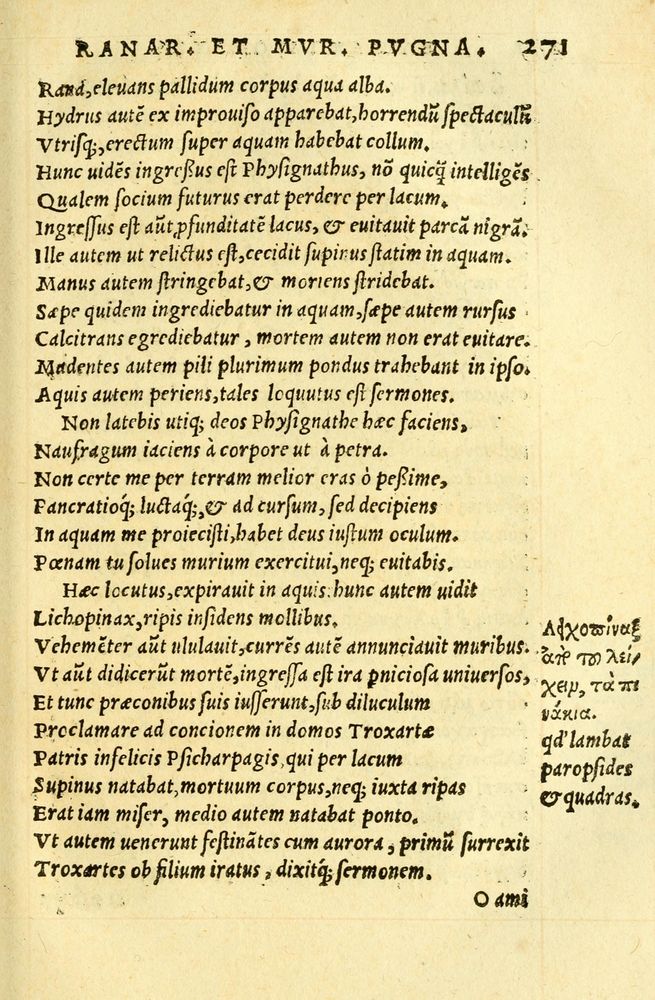 RANAR. ET MVR. PVGNA. 271
Rana, eleuans pallidum corpus aqua alba.
Hydrus autē ex improuiso apparebat, horrendū spectaculū
Vtrisq;, erectum super aquam habebat collum.
Hunc uidēs ingressus est Physignathus, nō quicq̄ intelligēs
Qualem socium futurus erat perdere per lacum.
Ingressus est aūt ꝓfunditatē lacus, & euitauit parcā nigrā.
Ille autem ut relictus est, cecidit supinus statim in aquam.
Manus autem stringebat, & moriens stridebat.
Sæpe quidem ingrediebatur in aquam, sæpe autem rursus
Calcitrans egrediebatur, mortem autem non erat euitare.
Madentes autem pili plurimum pondus trahebant in ipso.
Aquis autem periens, tales loquutus est sermones.
Non latebis utiq; deos Physignathe hæc faciens,
Naufragum iaciens à corpore ut à petra.
Non certe me per terram melior eras ò pessime,
Pancratioq́; luctaq́;, & ad cursum, sed decipiens
In aquam me proiecisti, habet deus iustum oculum.
Pœnam tu solues murium exercitui, neq; euitabis.
Hæc locutus, expirauit in aquis: hunc autem uidit
Lichopinax, ripis insidens mollibus.
Vehemēter aūt ululauit, currēs autē annunciauit muribus.
Vt aūt didicerūt mortē, ingressa est ira ꝑniciosa uniuersos,
Et tunc præconibus suis iusserunt, sub diluculum
Proclamare ad concionem in domos Troxartæ
Patris infelicis Psicharpagis, qui per lacum
Supinus natabat, mortuum corpus, neq; iuxta ripas
Erat iam miser, medio autem natabat ponto.
Vt autem uenerunt festinātes cum aurora, primū surrexit
Troxartes ob filium iratus, dixitq́; sermonem.
O ami
Λειχοπίναξ
ἀπὸ τοῦ λεί
χειν, τὰ πι
νάκια.
qd' lambat
paropsides
& quadras.